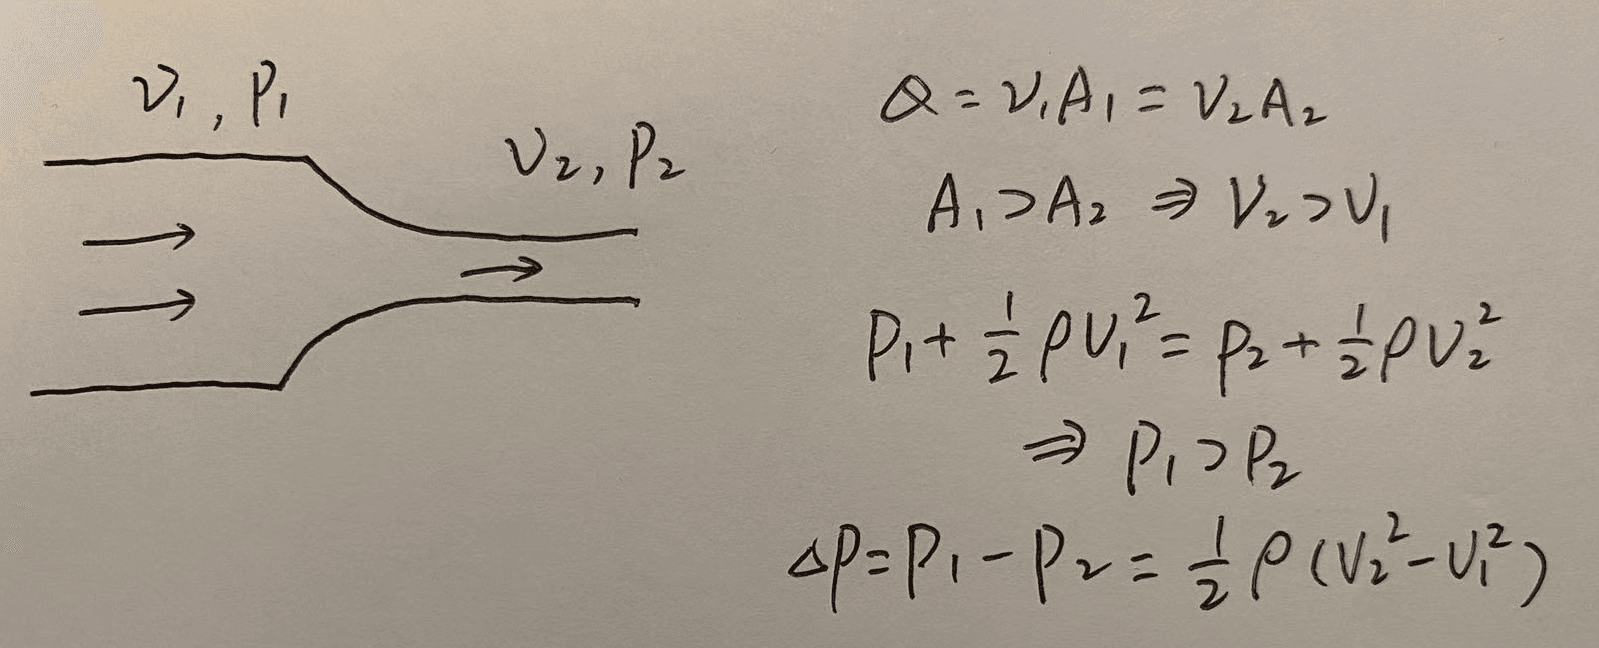 ν₁, P₁
ν₂, P₂
Q = ν₁A₁ = V₂A₂
A₁ > A₂ ⇒ V₂ > V₁
P₁ + ½ρV₁² = P₂ + ½ρV₂²
⇒ P₁ > P₂
ΔP = P₁ - P₂ = ½ρ(V₂² - V₁²)